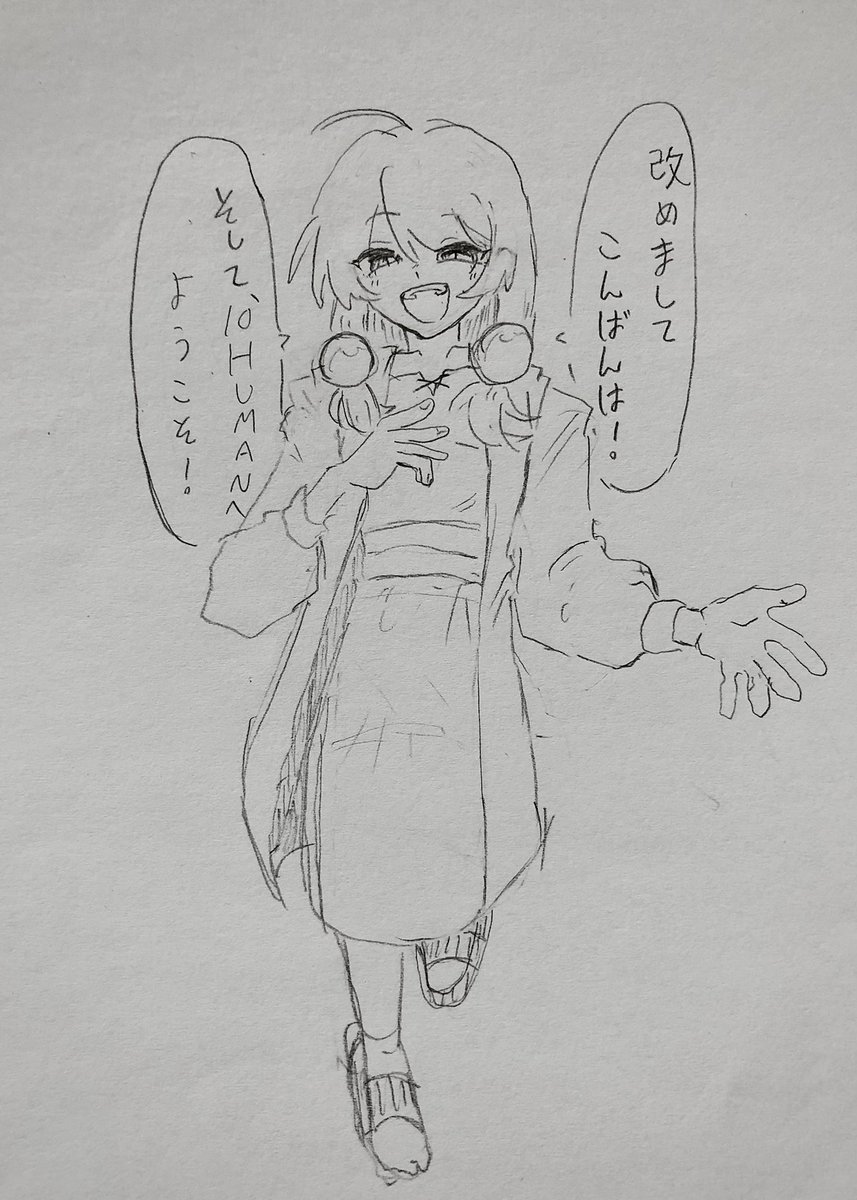 改めまして
こんばんは!。
そして、10HUMANへ
ようこそ!。